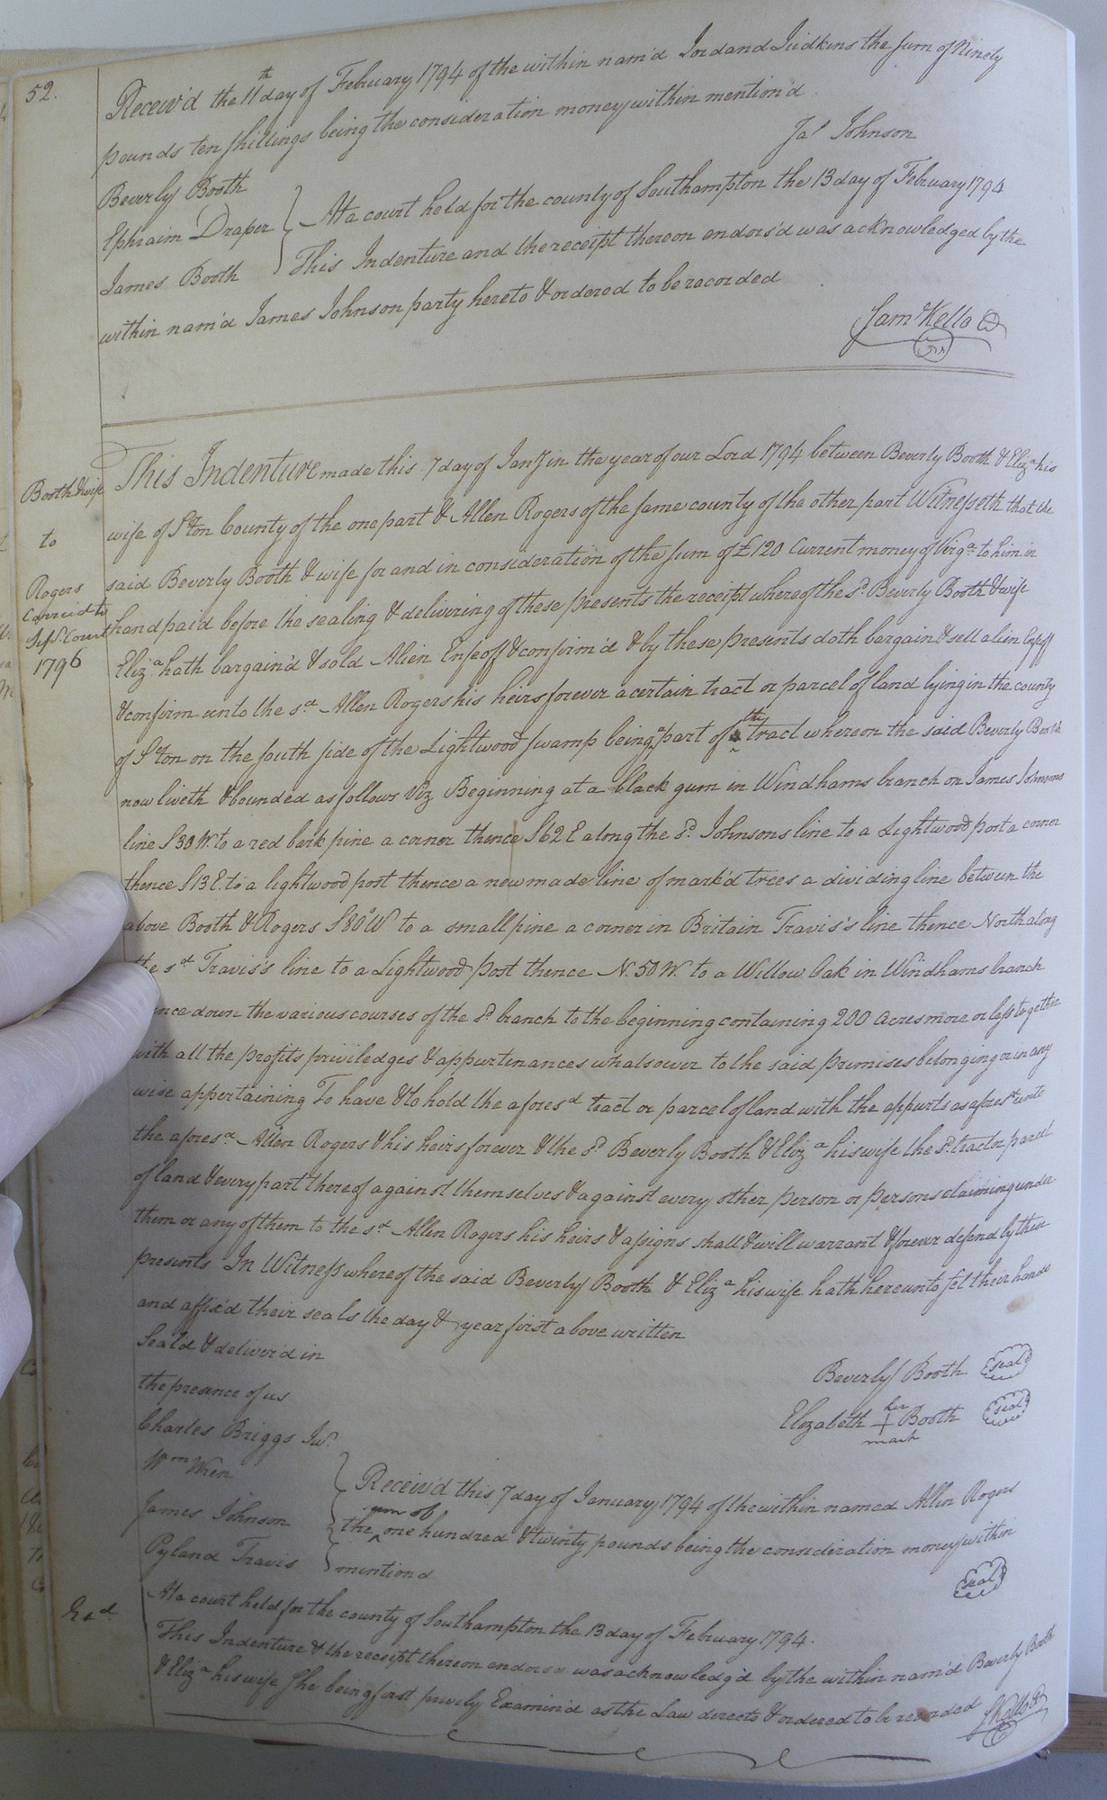 52.
Receiv'd the 11th day of February 1794 of the within nam'd Jordand Judkins the sum of Ninety
pounds ten shillings being the consideration money within mention'd
Jas Johnson
Beverly Booth
Ephraim Draper } At a court held for the county of Southampton the 13 day of February 1794
James Booth } This Indenture and the receipt thereon endors'd was acknowledged by the
within nam'd James Johnson party hereto & ordered to be recorded
Saml Kello
Booth & wife
to
Rogers
1796
This Indenture made this 7 day of Jany in the year of our Lord 1794 between Beverly Booth & Eliza his
wife of Ston County of the one part & Allen Rogers of the same county of the other part Witnesseth that the
said Beverly Booth & wife for and in consideration of the sum of £120 Current money of Virga to him in
hand paid before the sealing & delivering of these presents the receipt whereof the sd Beverly Booth & wife
Eliza hath bargain'd & sold Alien Enfeoff & confirm'd & by these presents doth bargain & sell alien Enfeoff
& confirm unto the sd Allen Rogers his heirs forever a certain tract or parcel of land lying in the county
of Ston on the south side of the Lightwood swamp being a part of the tract whereon the said Beverly Booth
now liveth & bounded as follows Viz Beginning at a black gum in Windhams branch on James Johnsons
line S30W. to a red bark pine a corner thence S62E along the sd Johnsons line to a Lightwood post a corner
thence S13E. to a lightwood post thence a new made line of mark'd trees a dividing line between the
above Booth & Rogers S80°W to a small pine a corner in Britain Travis's line thence North along
the sd Travis's line to a Lightwood post thence N.50W. to a Willow Oak in Windhams branch
thence down the various courses of the sd branch to the beginning containing 200 acres more or less together
with all the profits priviledges & appurtinances whatsoever to the said premises belonging or in any
wise appertaining To have & to hold the aforesd tract or parcel of land with the appurts as aforesd unto
the aforesd Allen Rogers & his heirs forever & the sd Beverly Booth & Eliza his wife the sd tract or parcel
of land & every part thereof against themselves & against every other person or persons claiming under
them or any of them to the sd Allen Rogers his heirs & assigns shall & will warrant & forever defend by these
presents In Witness whereof the said Beverly Booth & Eliza his wife hath hereunto set their hands
and affix'd their seals the day & year first above written
Seal'd & deliver'd in
the presence of us
Beverly Booth seal
Elizabeth her + mark Booth seal
Charles Briggs Junr
Wm Wren
James Johnson
Pyland Travis
Receiv'd this 7 day of January 1794 of the within named Allen Rogers
the sum of one hundred & twenty pounds being the consideration money within
mention'd
seal
At a court held for the county of Southampton the 13 day of February 1794.
Exd
This Indenture & the receipt thereon endors'd was acknowledg'd by the within nam'd Beverly Booth
& Eliza his wife she being first privily Examin'd as the Law directs & ordered to be recorded
S Kello